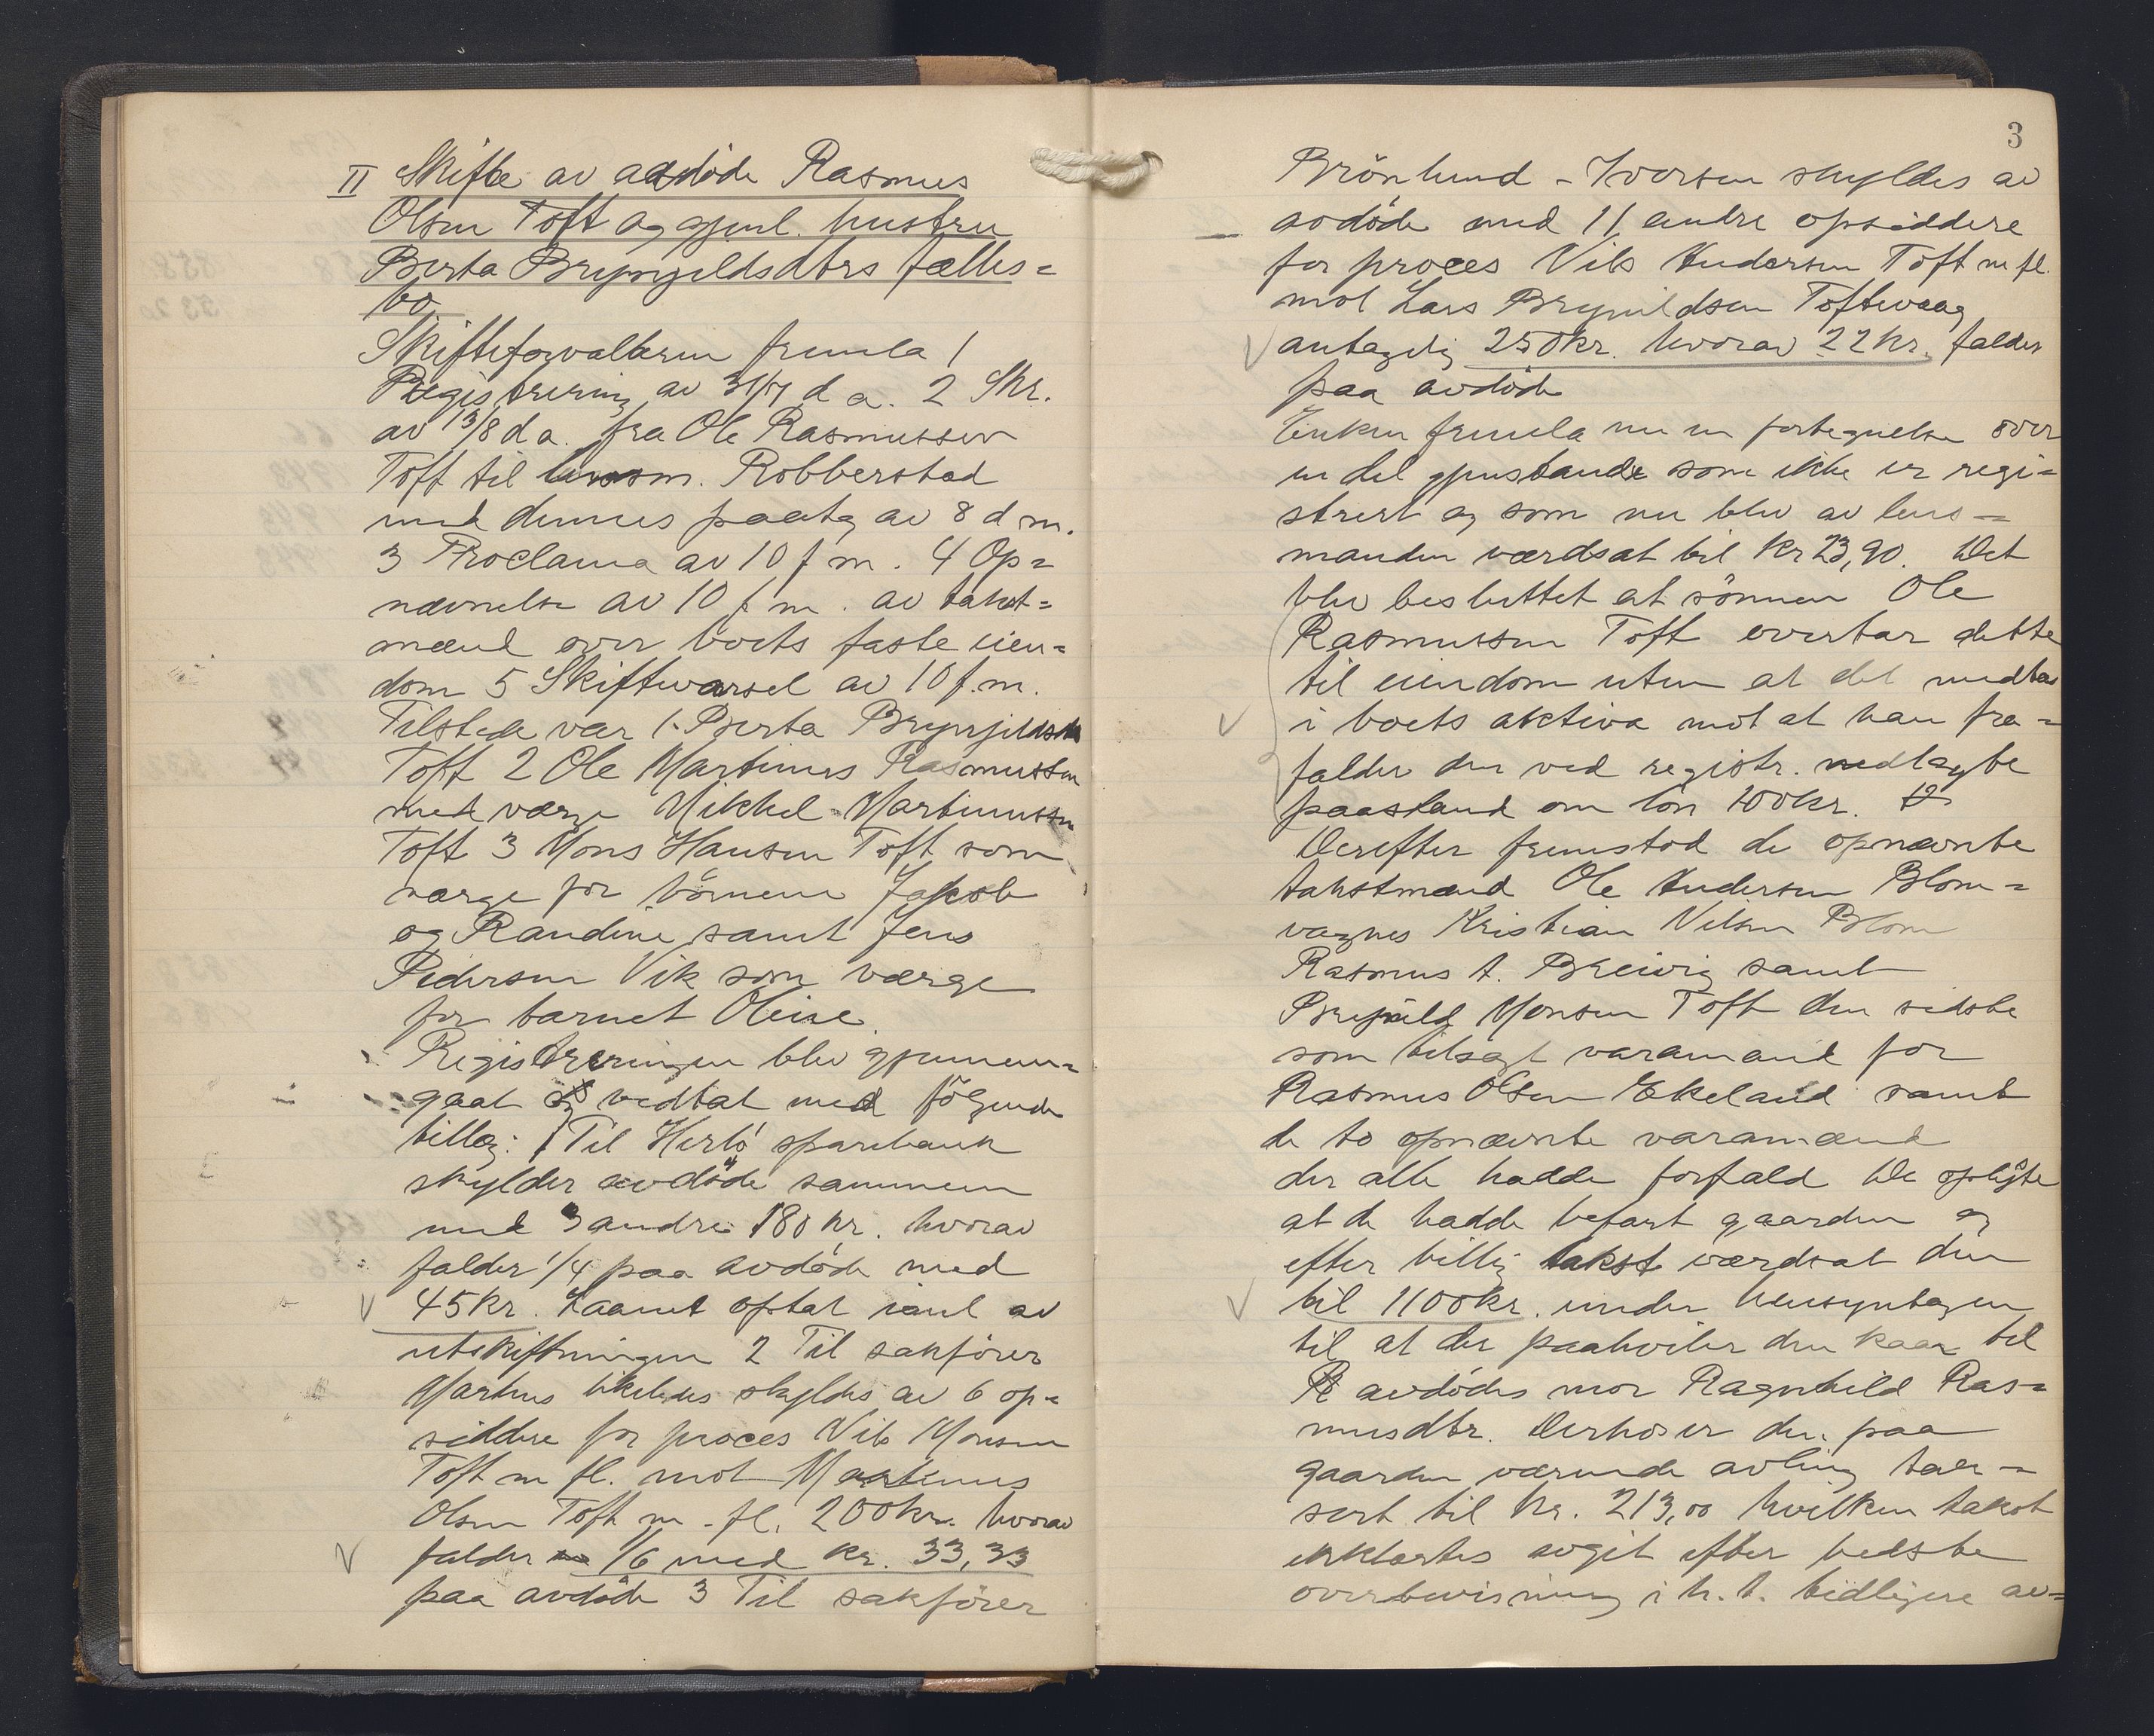 II Skifte av avdøde Rasmus
Olsen Toft og gjenl. hustru
Berta Brynjildsdtrs fælles=
bo
Skifteforvalteren fremla 1
Registrering av 31/7 d a. 2 Skr.
av 13/8 d a. fra Ole Rasmussen
Toft til lensm. Robberstad
med dennes paategn av 8 d m.
3 Proclama av 10 f m. 4 Op=
nævnelse av 10 f m. av takst=
mænd over boets faste eien=
dom 5 Skiftevarsel av 10 f.m.
Tilstede var 1. Berta Brynjildsdtr
Toft 2 Ole Martinus Rasmussen
med værge Mikkel Martinussen
Toft 3 Mons Hansen Toft som
værge for børnene Jakob
og Randine samt Jens
Pedersen Vik som værge
for barnet Oleine.
Registreringen blev gjennem=
gaat og vedtat med følgende
tillæg: 1 Til Herlø sparebank
skylder avdøde sammen
med 3 andre 180 kr. hvorav
falder 1/4 paa avdøde med
45 kr. Laanet optat i anl av
utskiftningen 2 Til sakfører
likeledes skyldes av 6 op=
siddere for proces Nils Monsen
Toft m fl. mot Martinus
Olsen Toft m. fl. 200 kr. hvorav
falder 1/6 med kr. 33,33
paa avdøde 3 Til sakfører
3
Brönlund-Iversen skyldes av
avdøde med 11 andre opsiddere
for proces Nils Andersen Toft m fl.
mot Lars Brynildsen Toftevaag
antagelig 250 kr. hvorav 22 kr. falder
paa avdøde
Enken fremla nu en fortegnelse over
en del gjenstande som ikke er regi=
strert og som nu blev av lens=
manden værdsat til kr 23,90. Det
blev besluttet at sønnen Ole
Rasmussen Toft overtar dette
til eiendom uten at det medtas
i boets aktiva mot at han fra=
falder den ved registr. nedlagte
paastand om løn 100 kr.
Derefter fremstod de opnævnte
takstmænd Ole Andersen Blom=
vagnes Kristian Nilsen Blom
Rasmus A. Breivig samt
Brynild Monsen Toft den sidste
som tilsagt varamand for
Rasmus Olsen Ekeland samt
de to opnævnte varamænd
der alle hadde forfald De oplyste
at de hadde befart gaarden og
efter billig takst værdsat den
til 1100 kr. under hensyntagen
til at der paahviler den kaar til
avdødes mor Ragnhild Ras=
musdtr. Derhos er den paa
gaarden værende avling tak=
sert til kr. 213,00 hvilken takst
erklærtes avgit efter bedste
overbevisning i h. t. tidligere av=